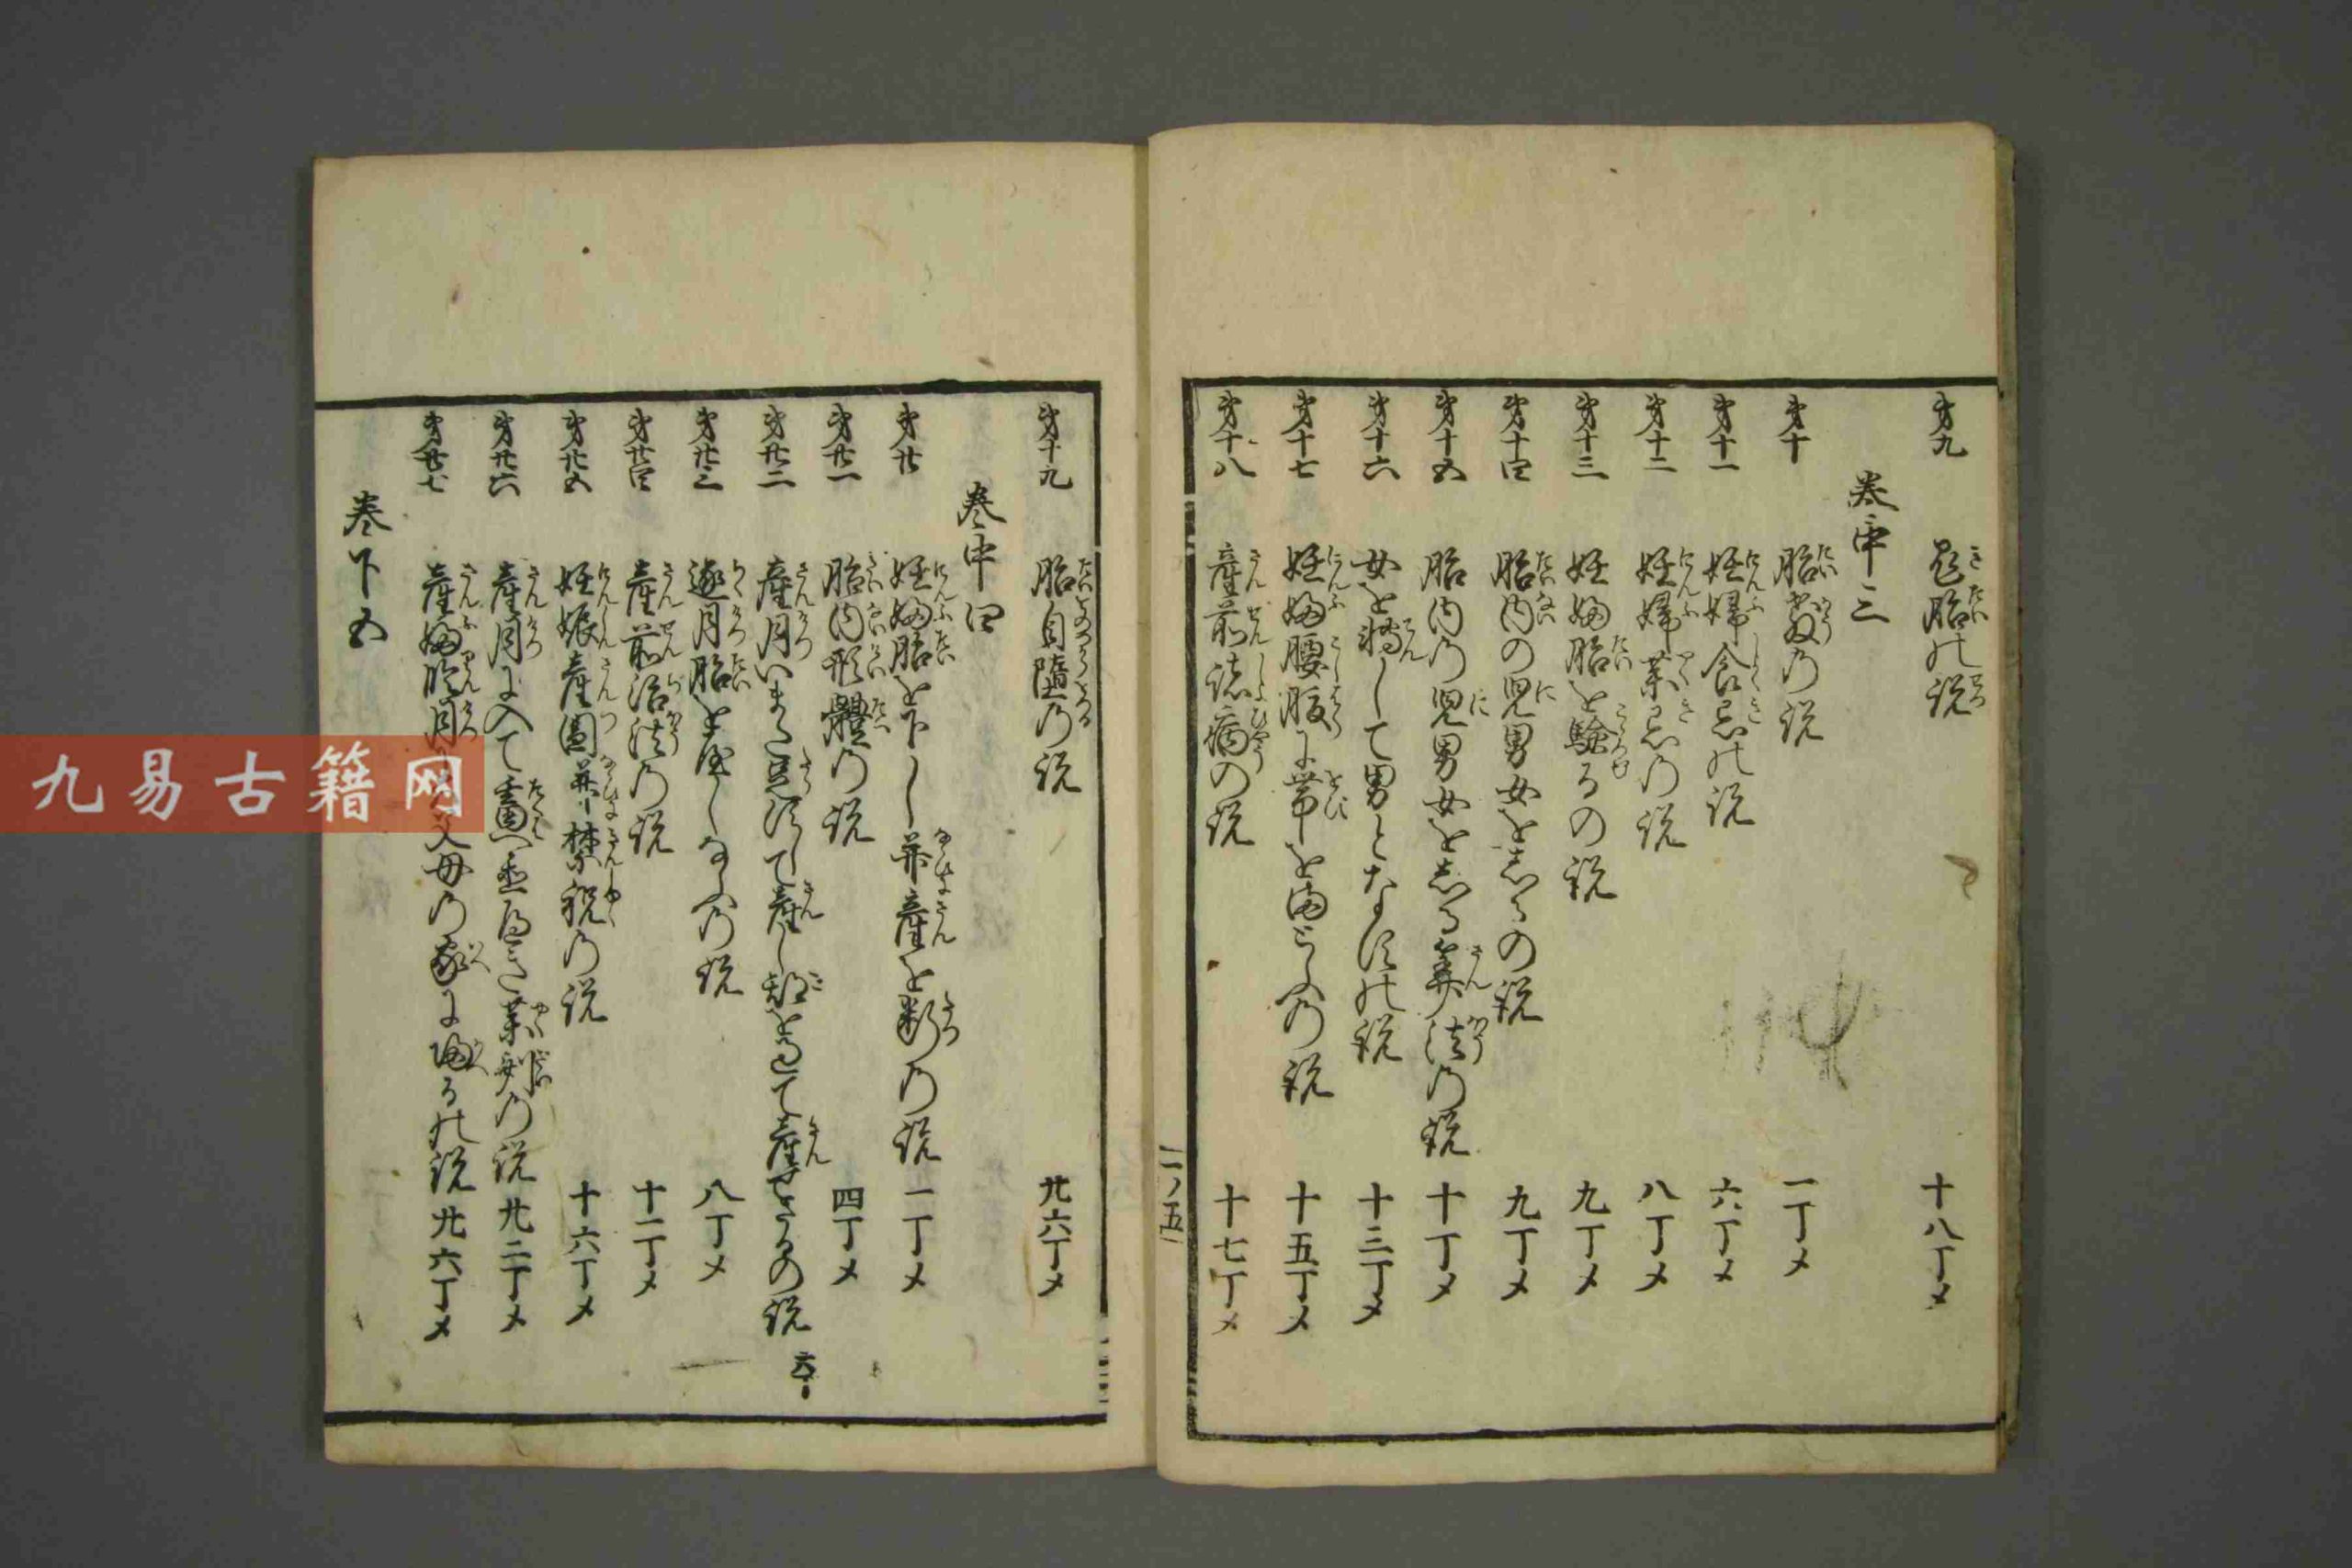 第九 鬼胎の説 十八丁メ
巻中三
第十 胎教の説 一丁メ
第十一 妊婦食忌の説 六丁メ
第十二 妊婦薬忌の説 八丁メ
第十三 妊婦胎を驗るの説 九丁メ
第十四 胎内の児男女をしるの説 九丁メ
第十五 胎内の児男女をしる算法の説 十丁メ
第十六 女を轉して男となすの説 十三丁メ
第十七 妊婦腰腹に帯をまとふの説 十五丁メ
第十八 産前諸病の説 十七丁メ
二ノ五
第十九 胎自墮の説 廿六丁メ
巻中四
第廿 妊婦胎を下し并産を断の説 一丁メ
第廿一 胎内形體の説 四丁メ
第廿二 産月いまた足すして産し都を過て産せさるの説 六丁
第廿三 逐月胎をやしなふの説 八丁メ
第廿四 産前治法の説 十二丁メ
第廿五 妊娠産圖并禁祝の説 十六丁メ
第廿六 産月に入て畜へき薬剤の説 廿二丁メ
第廿七 産婦臨月父母の家に帰るの説 廿六丁メ
巻下五
九易古籍网